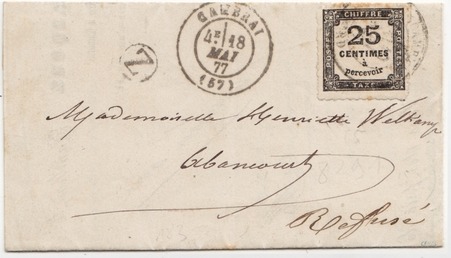 CAMBRAI
4E 18
MAI
77
(57)
Z
CHIFFRE
POSTES
25
CENTIMES
à
percevoir
POSTES
TAXE
Mademoiselle Henriette Welkamp
Abancourt
Refusé